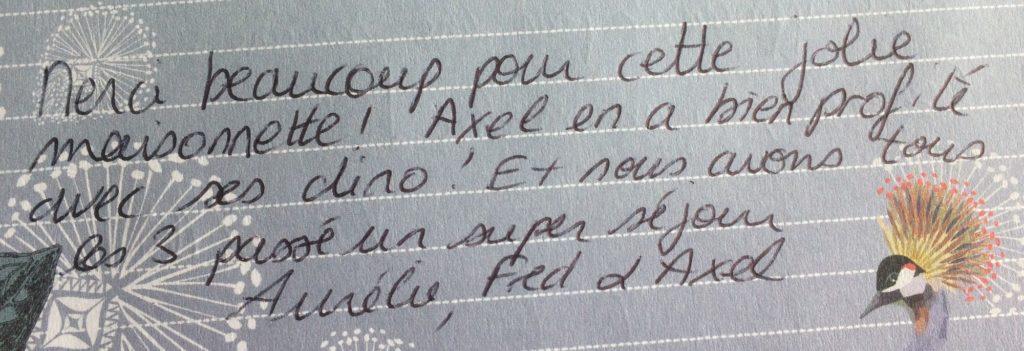 Merci beaucoup pour cette jolie
maisonnette! Axel en a bien profité
avec ses dino! Et nous avons tous
les 3 passé un super séjour
Aurélie, Fred & Axel